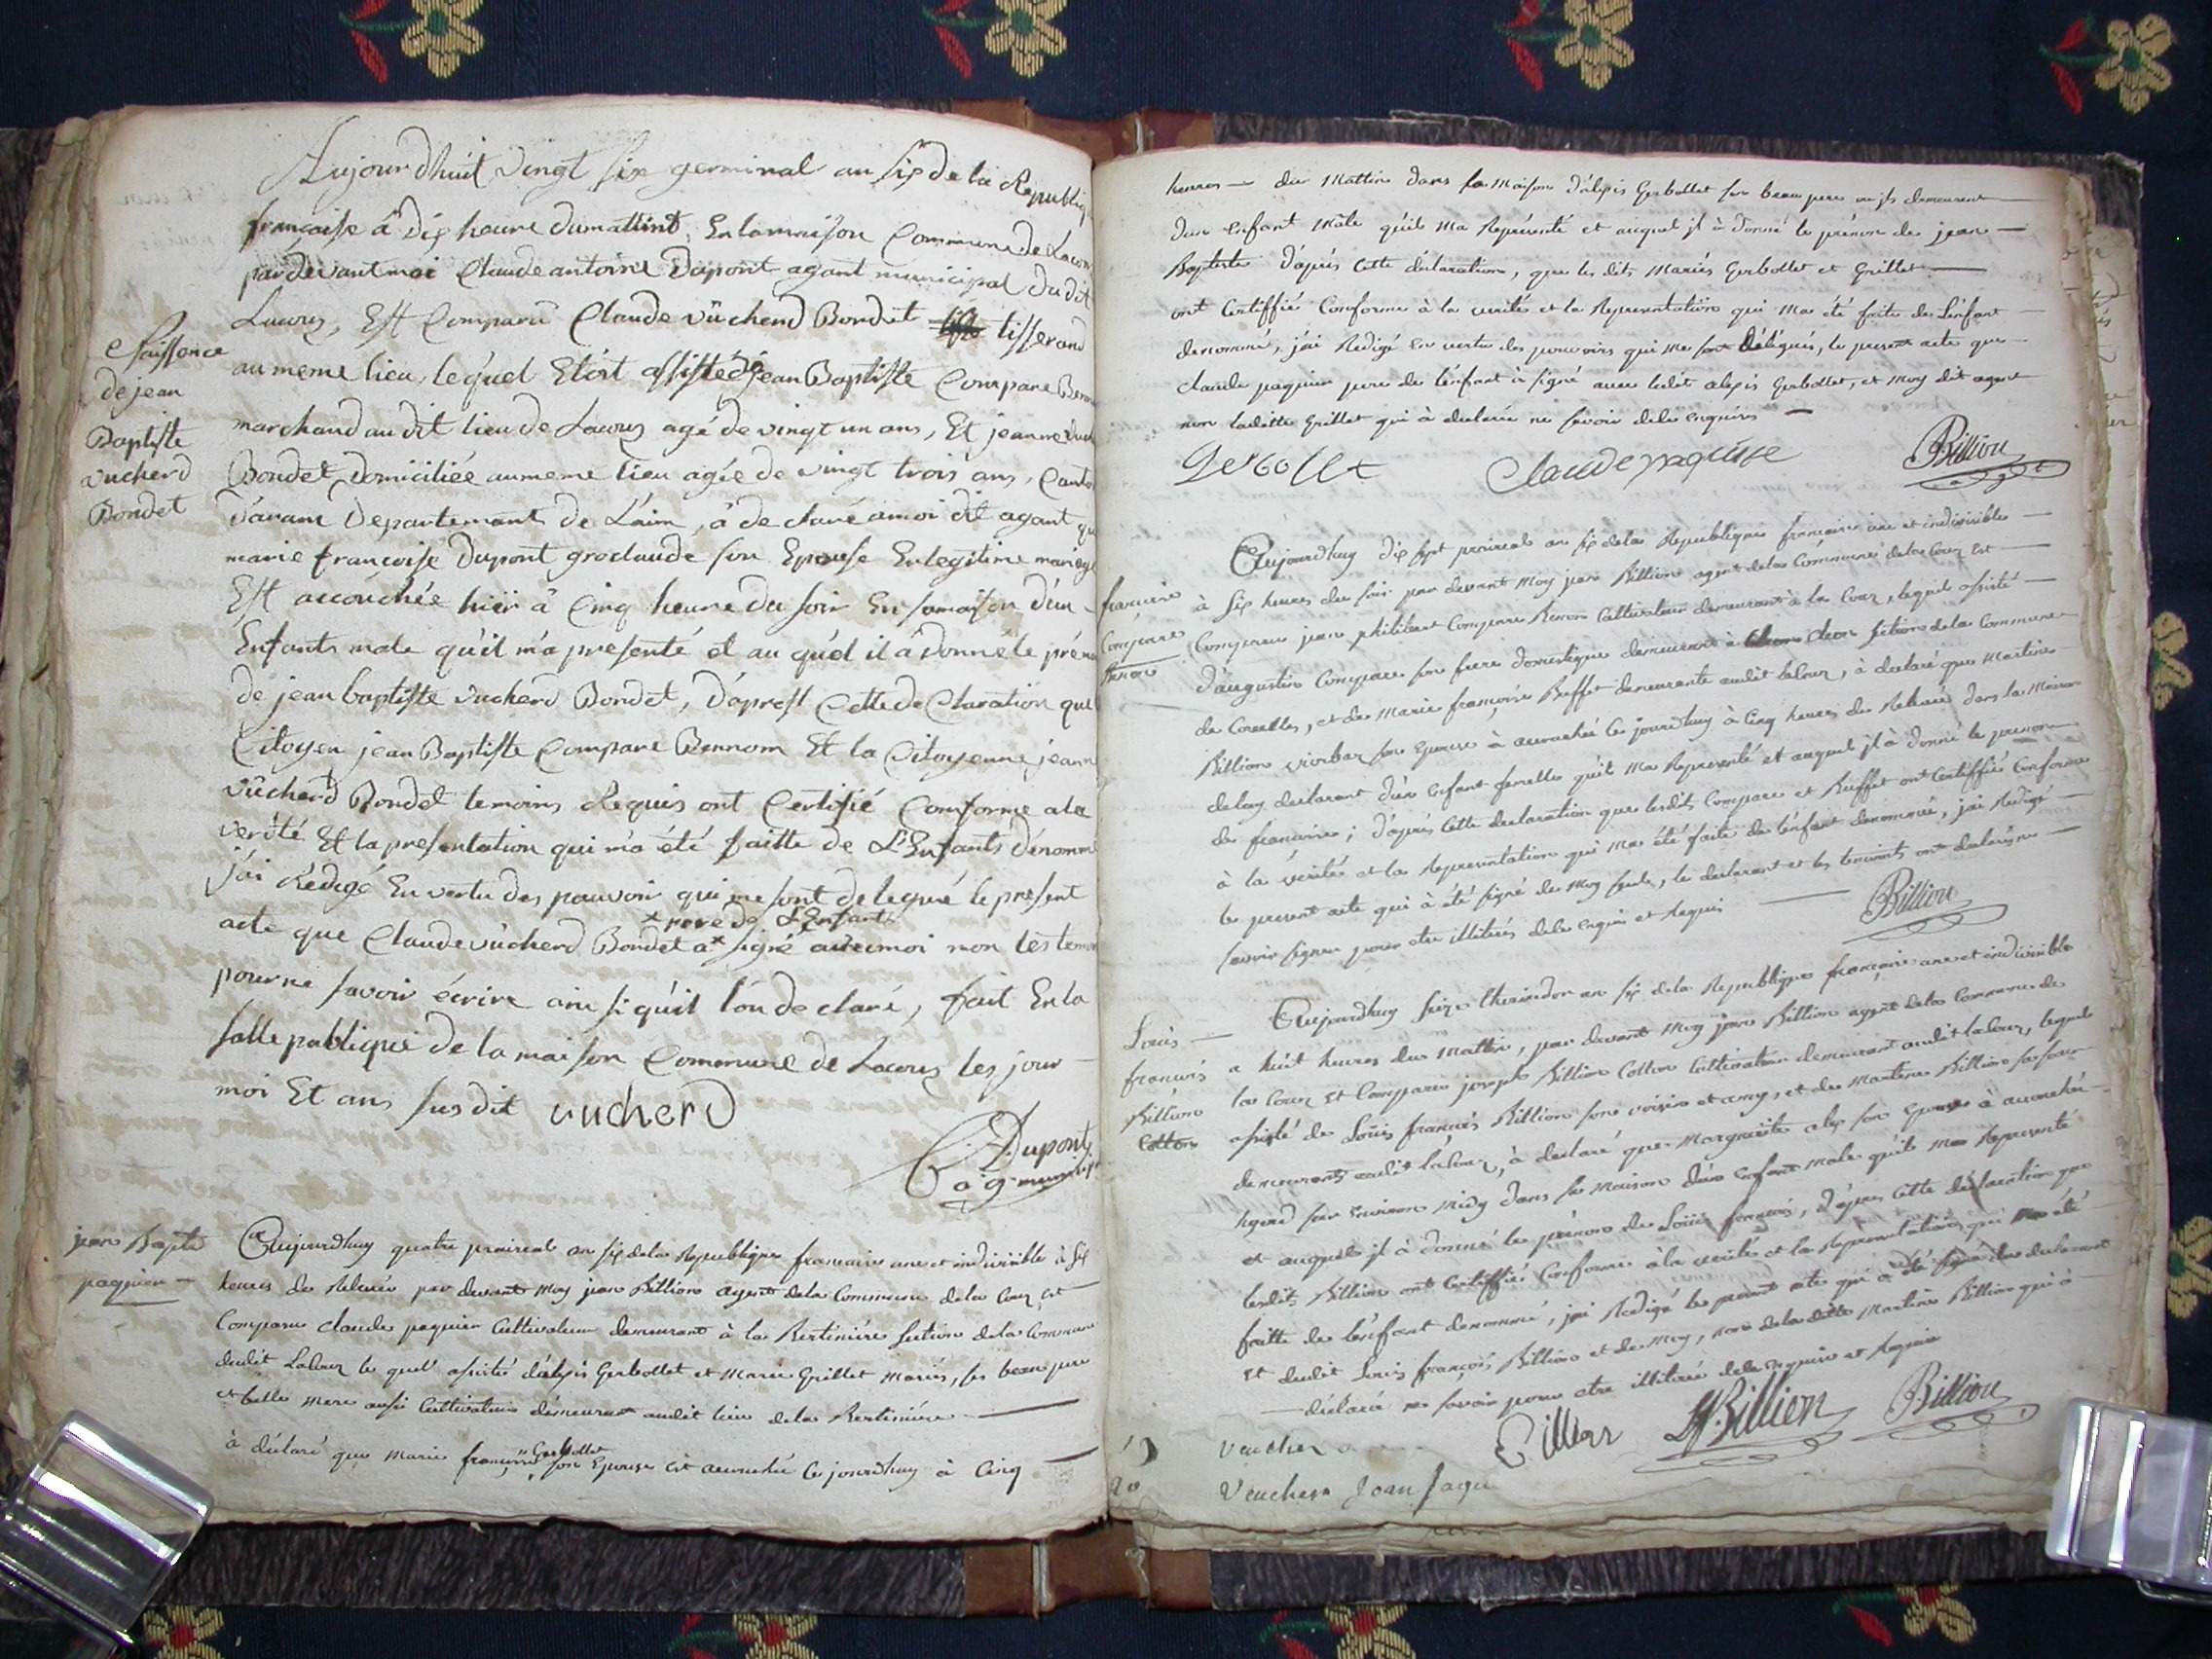 Aujourdhuit vingt six germinal an six de la Republiq
françoisse â Dix heure dumattint, En la maison Commune de Lacou
par devant moi Claude antoine Dupont agant municipal du dit
Lacoux, Est Comparû Claude vûcherd Bondet tisserand
au meme lieu, lequel Etoit assisté de jean Baptiste Compane Benn
marchand au dit lieu de Lacoux agé de vingt un ans, Et jeanne vuch
Bondet domiciliée au meme lieu agée de vingt trois ans, Canto
Departemant de L'ain, à declaré a moi dit agant qu
marie françoise Dupont groclaude son Epouse En legitime mariag
Est accouchée hiër â Cinq heure du soir En sa maison d'un
Enfants male qu'il m'a presenté et au quel il â donné le prén
de jean baptiste vucherd Bondet, D'aprest Cette de Claration que
Citoyen jean Baptiste Compane Bennom Et la Citoyenne jeann
vûcherd Bondet temoins Requis ont Certifié Comforme a la
verité Et la presentation qui m'a été faitte de L'Enfants dénomm
j'ai Rédigé En vertu des pouvoir qui me sont delegué le present
acte que Claude vûcherd Bondet a* signé avec moi non les temo
* pere de L'Enfant
pour ne savoir écrire ainsi qu'il l'on de claré, fait En la
salle publique de la maison Commune de Lacoux les jour
moi Et ans susdit vucherd
C Dupont
ag municip
Naissance
de jean
Baptiste
vucherd
Bondet
jean Baptiste
paquien
Aujourdhuy quatre prairial an six de la Republique francaise une et indivisible à six
heures de Relevée par devant Moy jean Billion agent de la Commune de la Coux est
Comparu claude paquien Cultivateur demeurant à la Bertinière section de la Commune
dudit Lacoux le quel assisté d'alexis Gerbollet et Marie Grillet Mariés, ses beau pere
et belle Mere aussi Cultivateurs demeurant audit lieu de la Bertinière
à déclaré que Marie françoise Gerbollet son Epouse est accouchée ce jourdhuy à Cinq
heures du Mattin dans la Maison d'alexis Gerbollet son beau pere ou ils demeurent
d'un Enfant Mâle qu'il Ma Représenté et auquel jl à donné le prénom de jean
Baptiste d'après Cette déclaration, que les dits Mariés Gerbollet et Grillet
ont Certiffié Conforme à la verité et la Representation qui Ma été faite de L'enfant
denommé, j'ai Redigé en vertu des pouvoirs qui me sont délégués, le present acte que
claude paquien pere de l'enfant à signé avec ledit alexis Gerbollet, et Moy dit agent
non laditte Grillet qui à declarée ne savoir de ce enquise
Gerbollet claude paquien Billion
françoise
Compare
Benom
Aujourdhuy dix sept prairial an six de la Republique francaise une et indivisible
à six heures du soir par devant Moy jean Billion agent de la Commune de la Coux Est
Comparu jean philibert Compare Benom Cultivateur demeurant à la Coux, lequel assisté
d'augustin Compare son frere domestique demeurant à section de la Commune
de Corcelles, et de Marie françoise Buffet demeurante audit lacoux, à declaré que Martine
Billion son Epouse à accouchée ce jourdhuy à Cinq heures de Relevée dans la Maison
delury declarant d'un Enfant femelle qu'il Ma Representé et auquel jl à donné le prenom
de francoise; d'après Cette declaration que lesdits Compare et Buffet ont Certiffié Conforme
à la vérité et la Representation qui Ma été faite de l'enfant denommée, j'ai Redigé
le present acte qui à été signé de Moy seul, le declarant et les temoins ont declaré ne
savoir signer pour etre illitérés de ce enquis et Requis
Billion
Louis
françois
Billion
Cotton
Aujourdhuy seize thermidor an six de la Republique françoise une et indivisible
a huit heures du Mattin, par devant Moy jean Billion agent de la Commune de
la Coux est Comparu joseph Billion Cotton Cultivateur demeurant audit lacoux, lequel
assisté de Loüis françois Billion son voisin et amy, et de Martine Billion sa soeur
demeurants audit lacoux, à declaré que Marguerite alex son Epouse à accouchée
hyerd sur Environ Midy dans sa Maison d'un Enfant male qu'il ma Representé
et auquel jl à donné le prénom de Loüis francois, d'après Cette declaration que
lesdits Billion ont Certiffié Conforme à la verité et la Representation qui Ma été
faitte de l'enfant denommé, j'ai Redigé le present acte qui à été signé du declarant
et dudit Loüis françois Billion et de Moy, non de la ditte Martine Billion qui à
déclaré ne savoir pour etre illitérée de ce Enquise et Requise
Billion Billion
veucher
Veucher Jean Jaqu